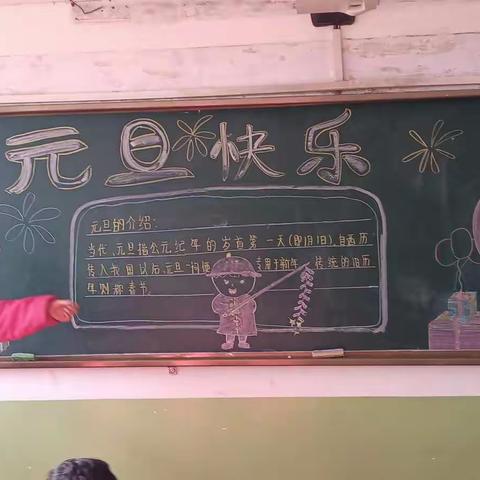 元旦快乐
元旦的介绍:
当代,元旦指公元纪年的岁首第一天(即1月1日).自西历
传入我国以后,元旦一词便专用于新年,传统的旧历
年则称春节.